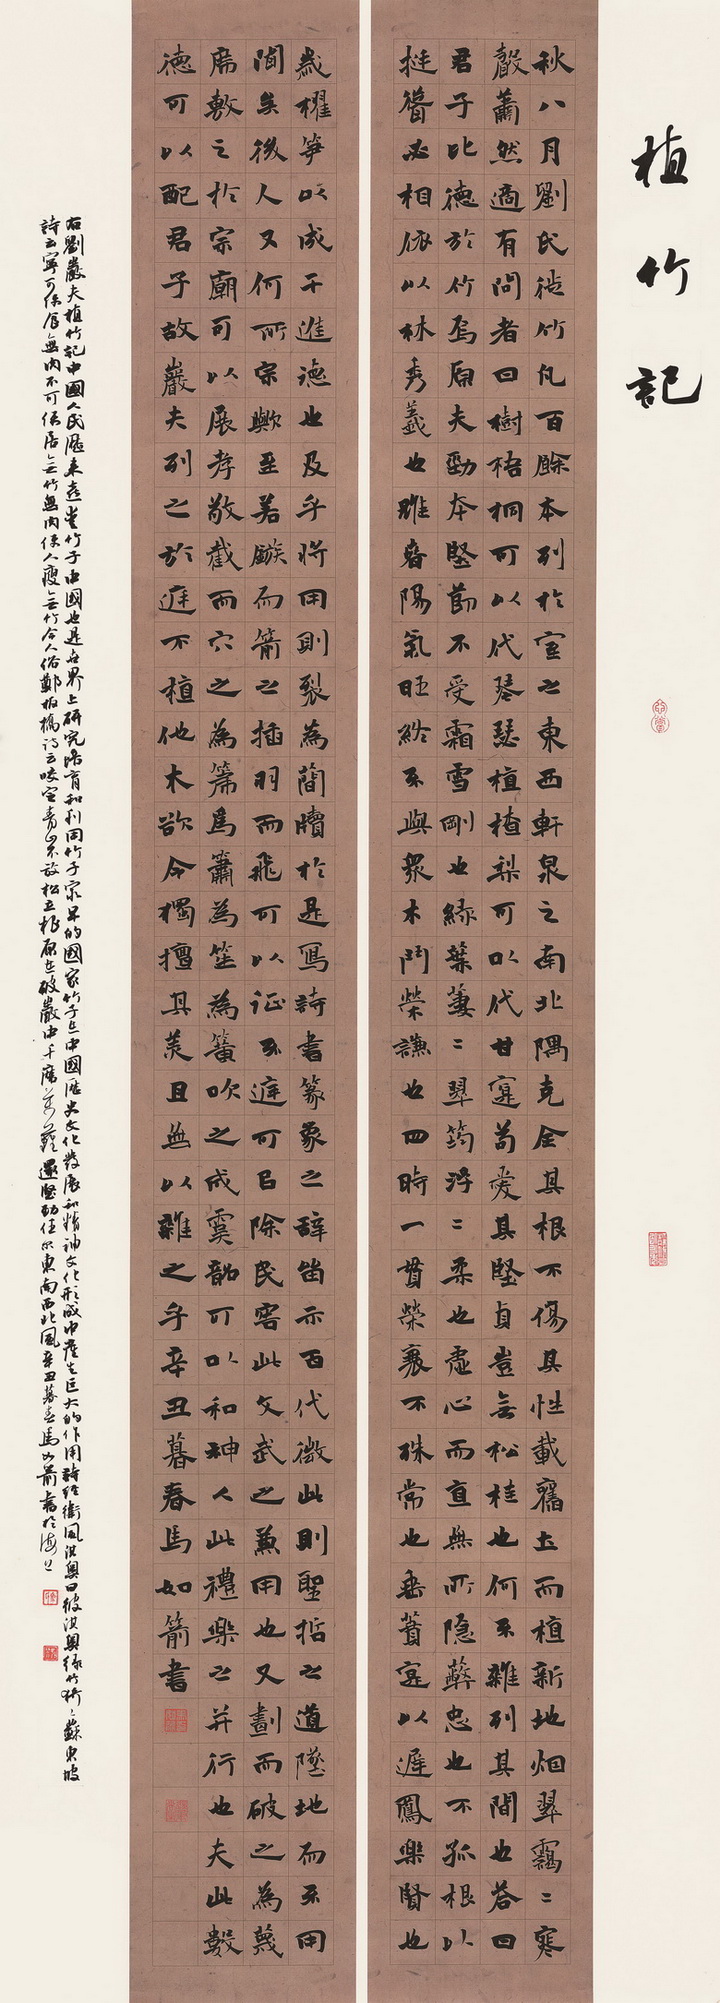 植竹記
秋八月劉氏徙竹凡百餘本列於室之東西軒泉之南北隅克全其根不傷其性載舊土而植新地烟翠靄〻寒
聲蕭然適有問者曰樹梧桐可以代琴瑟植楂梨可以代甘實苟愛其堅貞豈無松桂也何不雜列其間也答曰
君子比德於竹焉原夫勁本堅節不受霜雪剛也綠葉萋〻翠筠浮〻柔也虛心而直無所隱蔽忠也不孤根以
挺聳必相依以林秀義也雖春陽氣旺終不與眾木鬥榮謙也四時一貫榮衰不殊常也垂蕡實以遲鳳樂賢也
歲擢笋以成干進德也及乎將用則裂為簡牘於是寫詩書篆象之辭留示百代微此則聖哲之道墜地而不用
聞矣後人又何所宗歟至若鏃而箭之插羽而飛可以征不庭可以除民害此文武之兼用也又劃而破之為篾
席敷之於宗廟可以展孝敬截而穴之為篪為簫為笙為簧吹之成虞韶可以和神人此禮樂之并行也夫此數
德可以配君子故巖夫列之於庭不植他木欲令獨擅其美且無以雜之乎辛丑暮春馬如箭書
右劉巖夫植竹記中國人民歷來喜愛竹子中國也是世界上研究培育和利用竹子最早的國家竹子在中國歷史文化發展和精神文化形成中產生巨大的作用詩經衛風淇奧曰彼淇奧綠竹猗〻蘇東坡
詩云寧可使食無肉不可使居無竹無肉使人瘦無竹令人俗鄭板橋詩云咬定青山不放松立根原在破巖中千磨萬擊還堅勁任爾東南西北風辛丑暮春馬如箭書於海上